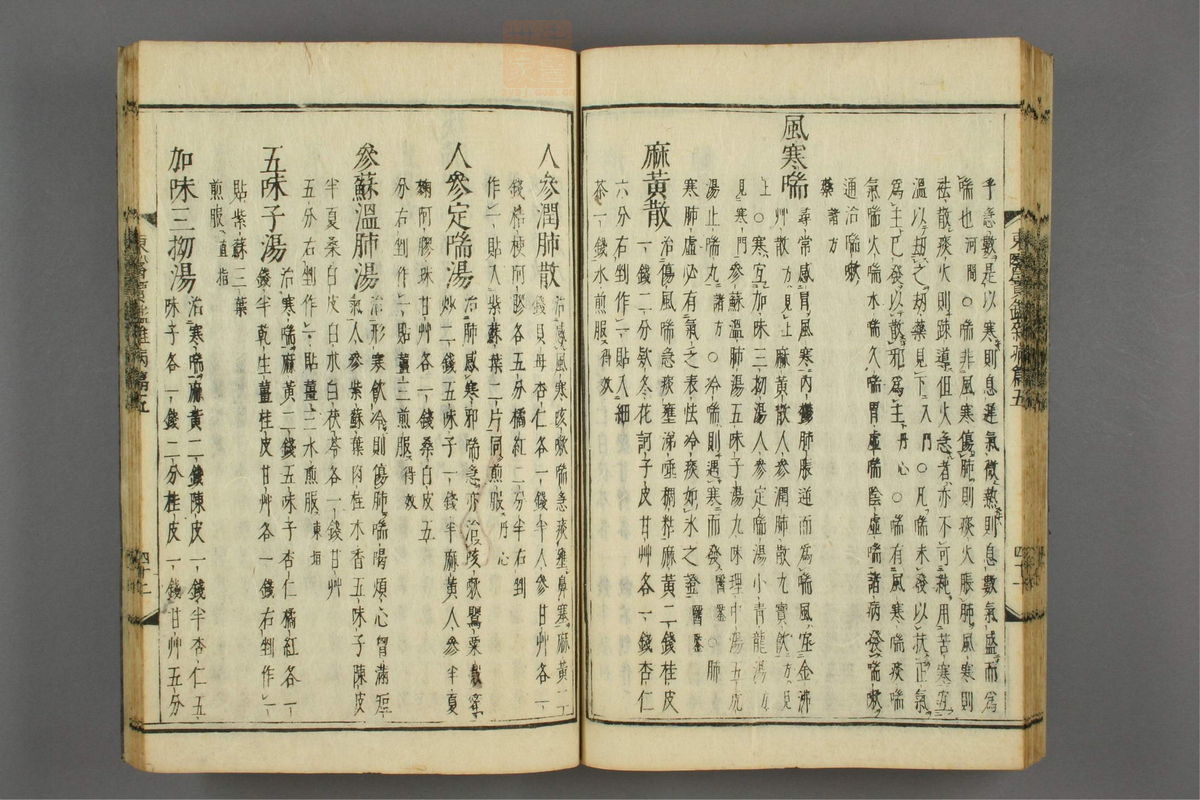 乎急數是以寒則息遲氣微熱則息數氣盛而爲
喘也河間○喘非風寒傷肺則痰火脹肺風寒則
祛散痰火則疎導但火急者亦不可純用苦寒宜
溫以劫之劫藥見下入門○凡喘未發以扶正氣
爲主已發以散邪爲主丹心○喘有風寒喘痰喘
氣喘火喘水喘久喘胃虛喘陰虛喘諸病發喘嗽
通治喘嗽
藥諸方
風寒喘
尋常感冒風寒內鬱肺脹逆而爲喘風宜金沸
艸散方見上麻黃散人參潤肺散九寶飮方見
上○寒宜加味三拗湯人參定喘湯小青龍湯方
見寒門參蘇溫肺湯五味子湯九味理中湯五虎
湯止喘丸諸方○冷喘則遇寒而發醫鑑○肺
寒肺虛必有氣乏表怯冷痰如氷之證醫鑑
麻黃散
治傷風喘急痰壅涕唾稠粘麻黃二錢桂皮
一錢二分欵冬花訶子皮甘艸各一錢杏仁
六分右剉作一貼入細
茶一錢水煎服得效
人參潤肺散
治感風寒咳嗽喘急痰壅鼻塞麻黃二
錢貝母杏仁各一錢半人參甘艸各一
錢桔梗阿膠各五分橘紅二分半右剉
作一貼入紫蘇葉二片同煎服丹心
人參定喘湯
治肺感寒邪喘急亦治咳嗽鸎粟殼蜜
炒二錢五味子一錢半麻黃人參半夏
麴阿膠珠甘艸各一錢桑白皮五
分右剉作一貼薑三煎服得效
參蘇溫肺湯
治形寒飮冷則傷肺喘喝煩心胷滿短
氣人參紫蘇葉肉桂木香五味子陳皮
半夏桑白皮白朮白茯苓各一錢甘艸
五分右剉作一貼薑三水煎服東垣
五味子湯
治寒喘麻黃二錢五味子杏仁橘紅各一
錢半乾生薑桂皮甘艸各一錢右剉作一
貼紫蘇三葉
煎服直指
加味三拗湯
治寒喘麻黃二錢陳皮一錢半杏仁五
味子各一錢二分桂皮一錢甘艸五分